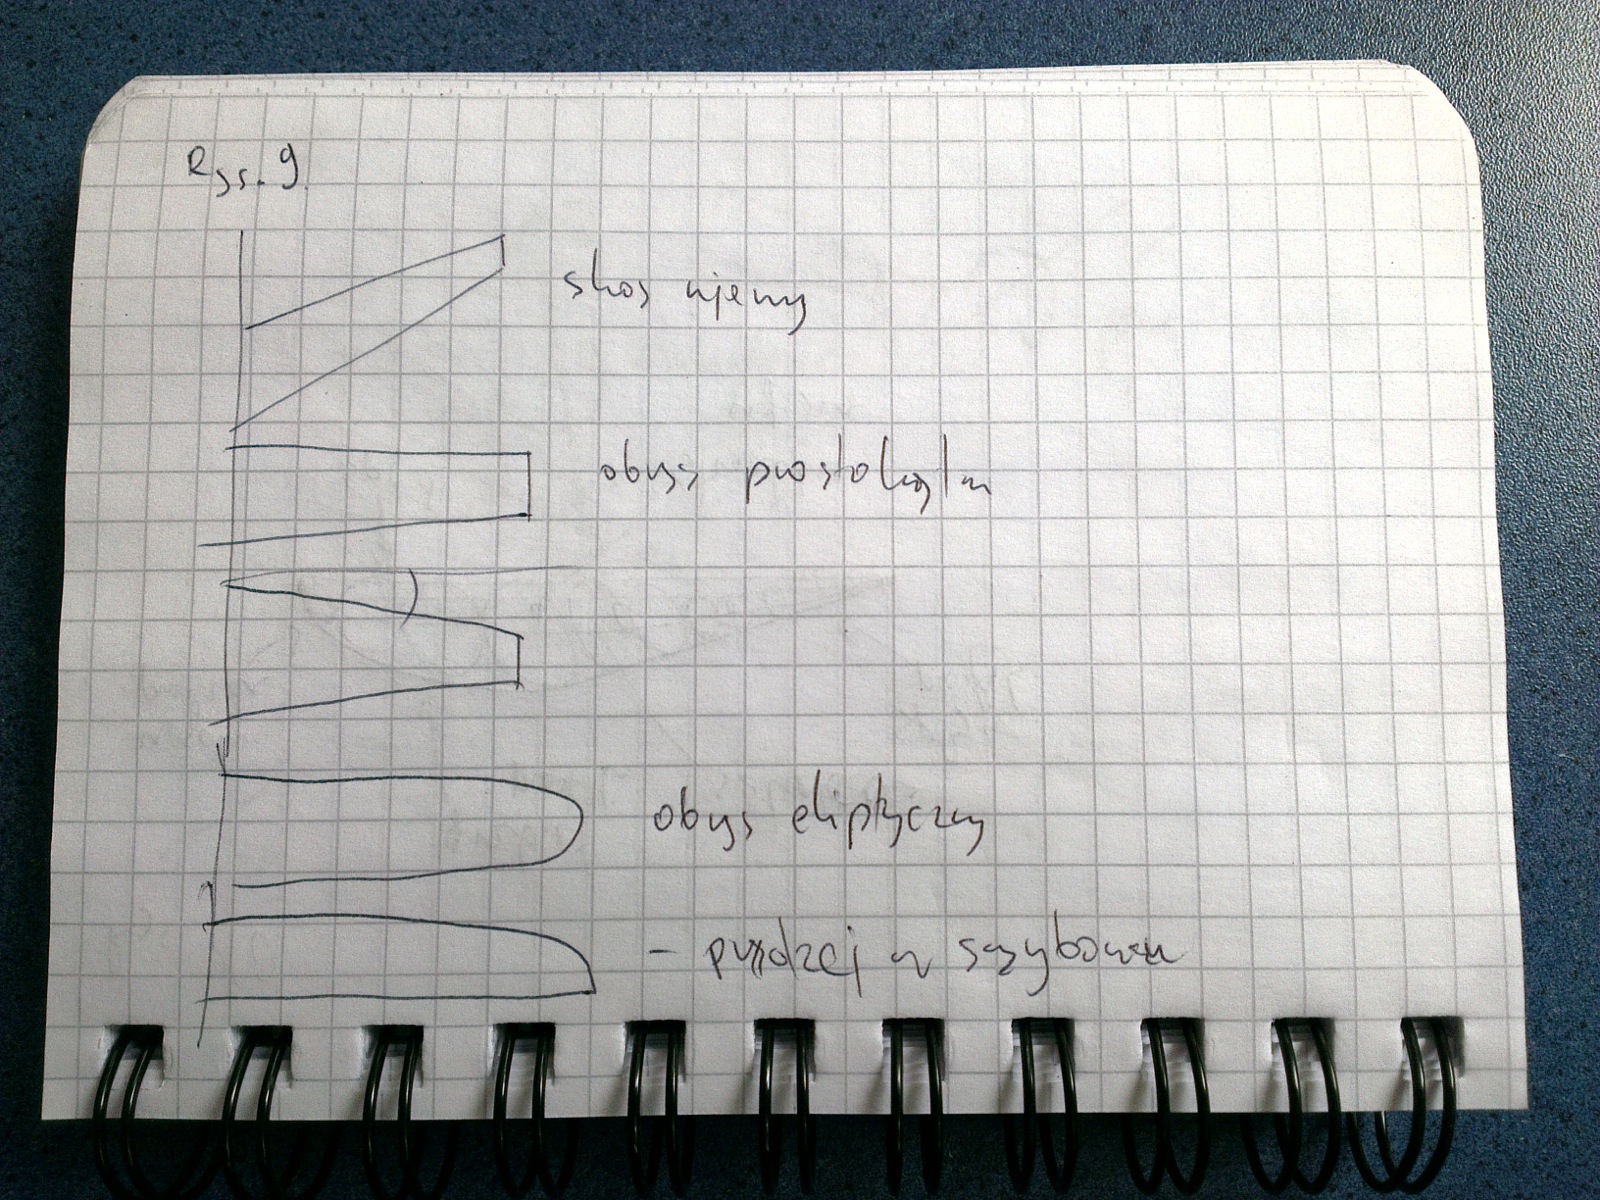 Rys. 9.
skos ujemy
obrys prostokątn
obrys eliptyczny
- prędzej w szybowcu